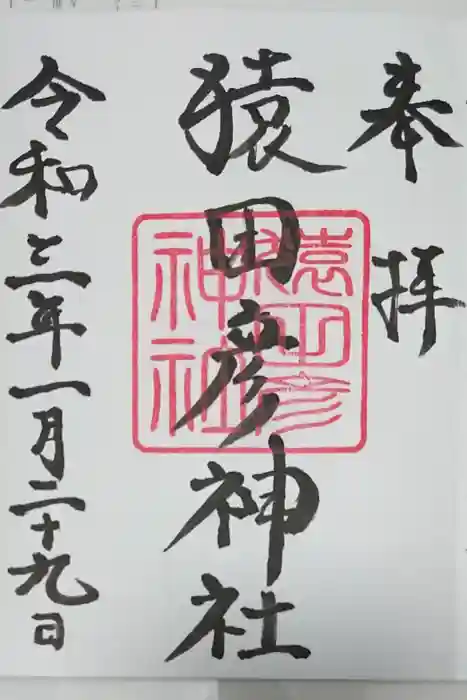 奉拝
猿田彦神社
猿田彦神社
令和三年一月二十九日